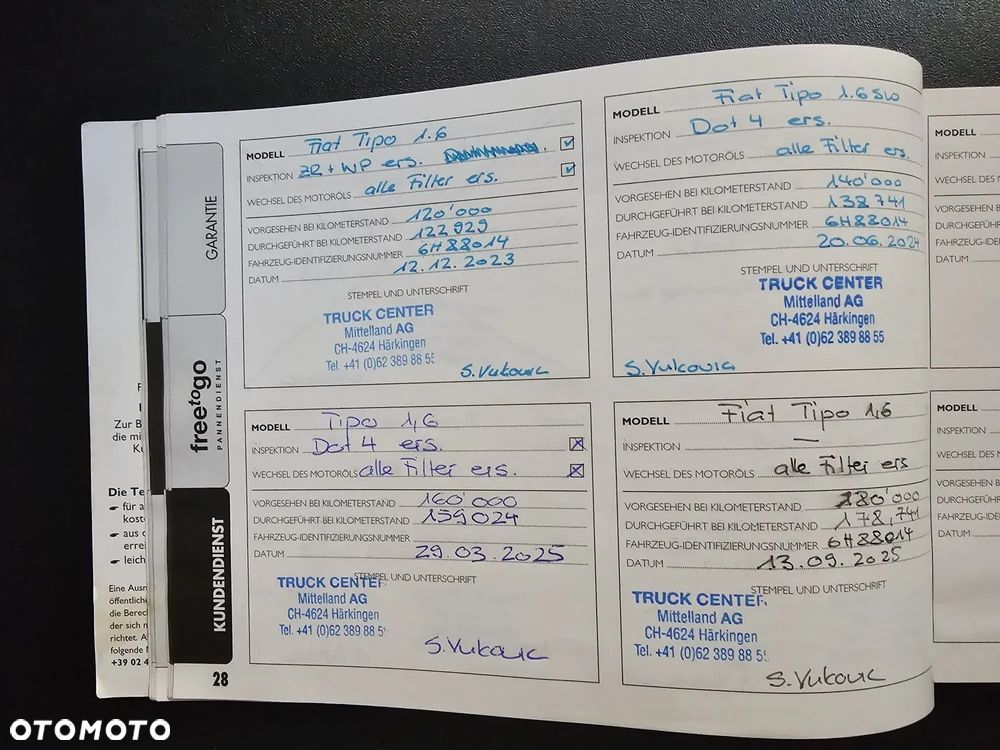 GARANTIE
freetogo
PANNENDIENST
KUNDENDIENST
28
Zur B
die mi
Die Te
für a
kost
aus
errei
leich
Eine Ausn
öffentliche
die Berec
der sich n
richtet. A
folgende
+39 02 4
MODELL Fiat Tipo 1.6
INSPEKTION ZR + WP ers.
WECHSEL DES MOTORÖLS alle Filter ers.
VORGESEHEN BEI KILOMETERSTAND 120'000
DURCHGEFÜHRT BEI KILOMETERSTAND 122929
FAHRZEUG-IDENTIFIZIERUNGSNUMMER 6H88014
DATUM 12.12.2023
STEMPEL UND UNTERSCHRIFT
TRUCK CENTER
Mittelland AG
CH-4624 Härkingen
Tel. +41 (0)62 389 88 55
S. Vukovic
MODELL Fiat Tipo 1.6 SW
INSPEKTION Dot 4 ers.
WECHSEL DES MOTORÖLS alle Filter ers.
VORGESEHEN BEI KILOMETERSTAND 140'000
DURCHGEFÜHRT BEI KILOMETERSTAND 138741
FAHRZEUG-IDENTIFIZIERUNGSNUMMER 6H88014
DATUM 20.06.2024
STEMPEL UND UNTERSCHRIFT
TRUCK CENTER
Mittelland AG
CH-4624 Härkingen
Tel. +41 (0)62 389 88 55
S. Vukovic
MODELL Tipo 1,6
INSPEKTION Dot 4 ers.
WECHSEL DES MOTORÖLS alle Filter ers.
VORGESEHEN BEI KILOMETERSTAND 160'000
DURCHGEFÜHRT BEI KILOMETERSTAND 159024
FAHRZEUG-IDENTIFIZIERUNGSNUMMER
DATUM 29.03.2025
STEMPEL UND UNTERSCHRIFT
TRUCK CENTER
Mittelland AG
CH-4624 Härkingen
Tel. +41 (0)62 389 88 5
S. Vukovic
MODELL Fiat Tipo 1,6
INSPEKTION —
WECHSEL DES MOTORÖLS alle Filter ers
VORGESEHEN BEI KILOMETERSTAND 180'000
DURCHGEFÜHRT BEI KILOMETERSTAND 178,741
FAHRZEUG-IDENTIFIZIERUNGSNUMMER 6H88014
DATUM 13.09.2025
STEMPEL UND UNTERSCHRIFT
TRUCK CENTER
Mittelland AG
CH-4624 Härkingen
Tel. +41 (0)62 389 88 5
S. Vukovic
MODELL
INSPEKTION
WECHSEL DES M
VORGESEHEN B
DURCHGEFÜHR
FAHRZEUG-IDEN
DATUM
MODELL
INSPEKTION
WECHSEL DES M
VORGESEHEN B
DURCHGEFÜHR
FAHRZEUG-IDEN
DATUM
OTOMOTO